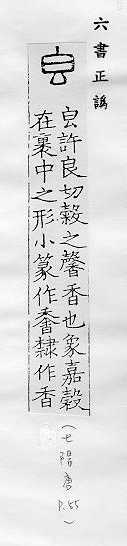 六書正譌
皀
皀許良切穀之馨香也象嘉穀
在裹中之形小篆作隸作香
(七陽唐 P.55)